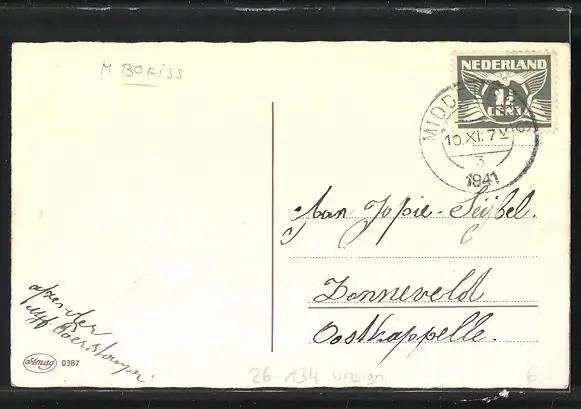 M BORISS
NEDERLAND
1½
CENT
MIDD
10.XI.7
3
1941
Aan Jopie-Seijbel.
Zonneveld
Oostkappelle.
afzender
Amag 0387
26-134 Unsign
6.-